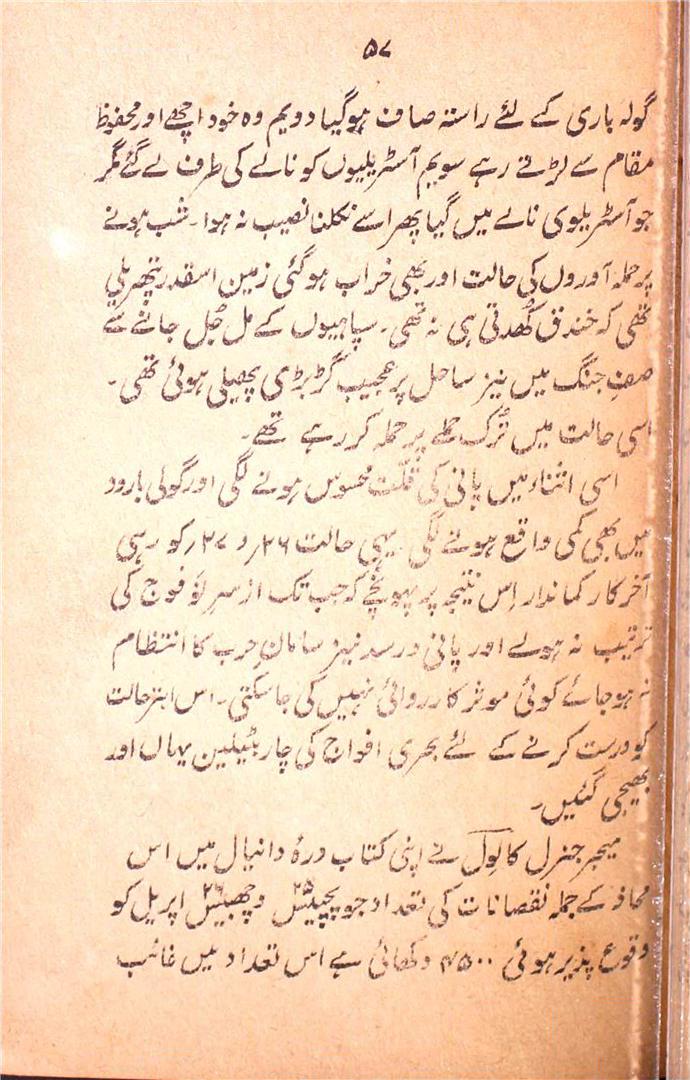 ۵۷
گولہ باری کے لئے راستہ صاف ہوگیا دویم وہ خود اچھے اور محفوظ
مقام سے لڑتے رہے سویم آسٹریلیوں کو نالے کی طرف لے گئے مگر
جو آسٹریلوی نالے میں گیا پھر اسے نکلنا نصیب نہ ہوا۔ شب ہونے
پر حملہ آوروں کی حالت اور بھی خراب ہوگئی زمین اسقدر پتھریلی
تھی کہ خندق کُھدتی ہی نہ تھی۔ سپاہیوں کے مل جُل جانے سے
صفِ جنگ میں نیز ساحل پر عجیب گڑبڑی پھیلی ہوئی تھی۔
اسی حالت میں تُرک حملے پر حملہ کر رہے تھے۔
اسی اثناء میں پانی کی قلّت محسوس ہونے لگی اور گولی بارود
میں بھی کمی واقع ہونے لگی۔ یہی حالت ۲۶؍ و ۲۷؍ کو رہی
آخرکار کماندار اِس نتیجہ پر پہونچے کہ جب تک از سرِ نَو فوج کی
ترتیب نہ ہولے اور پانی و رسد نیز سامانِ حرب کا انتظام
نہ ہوجائے کوئی موثر کارروائی نہیں کی جاسکتی۔ اس ابتر حالت
کو درست کرنے کے لئے بحری افواج کی چار بٹیلین یہاں اور
بھیجی گئیں۔
میجر جنرل کالوِل نے اپنی کتاب درۂ دانیال میں اس
محاذ کے جملہ نقصانات کی تعداد جو پچیس ۲۵ و چھبیس ۲۶ اپریل کو
وقوع پذیر ہوئی ۴۵۰۰ دکھائی ہے اس تعداد میں غائب